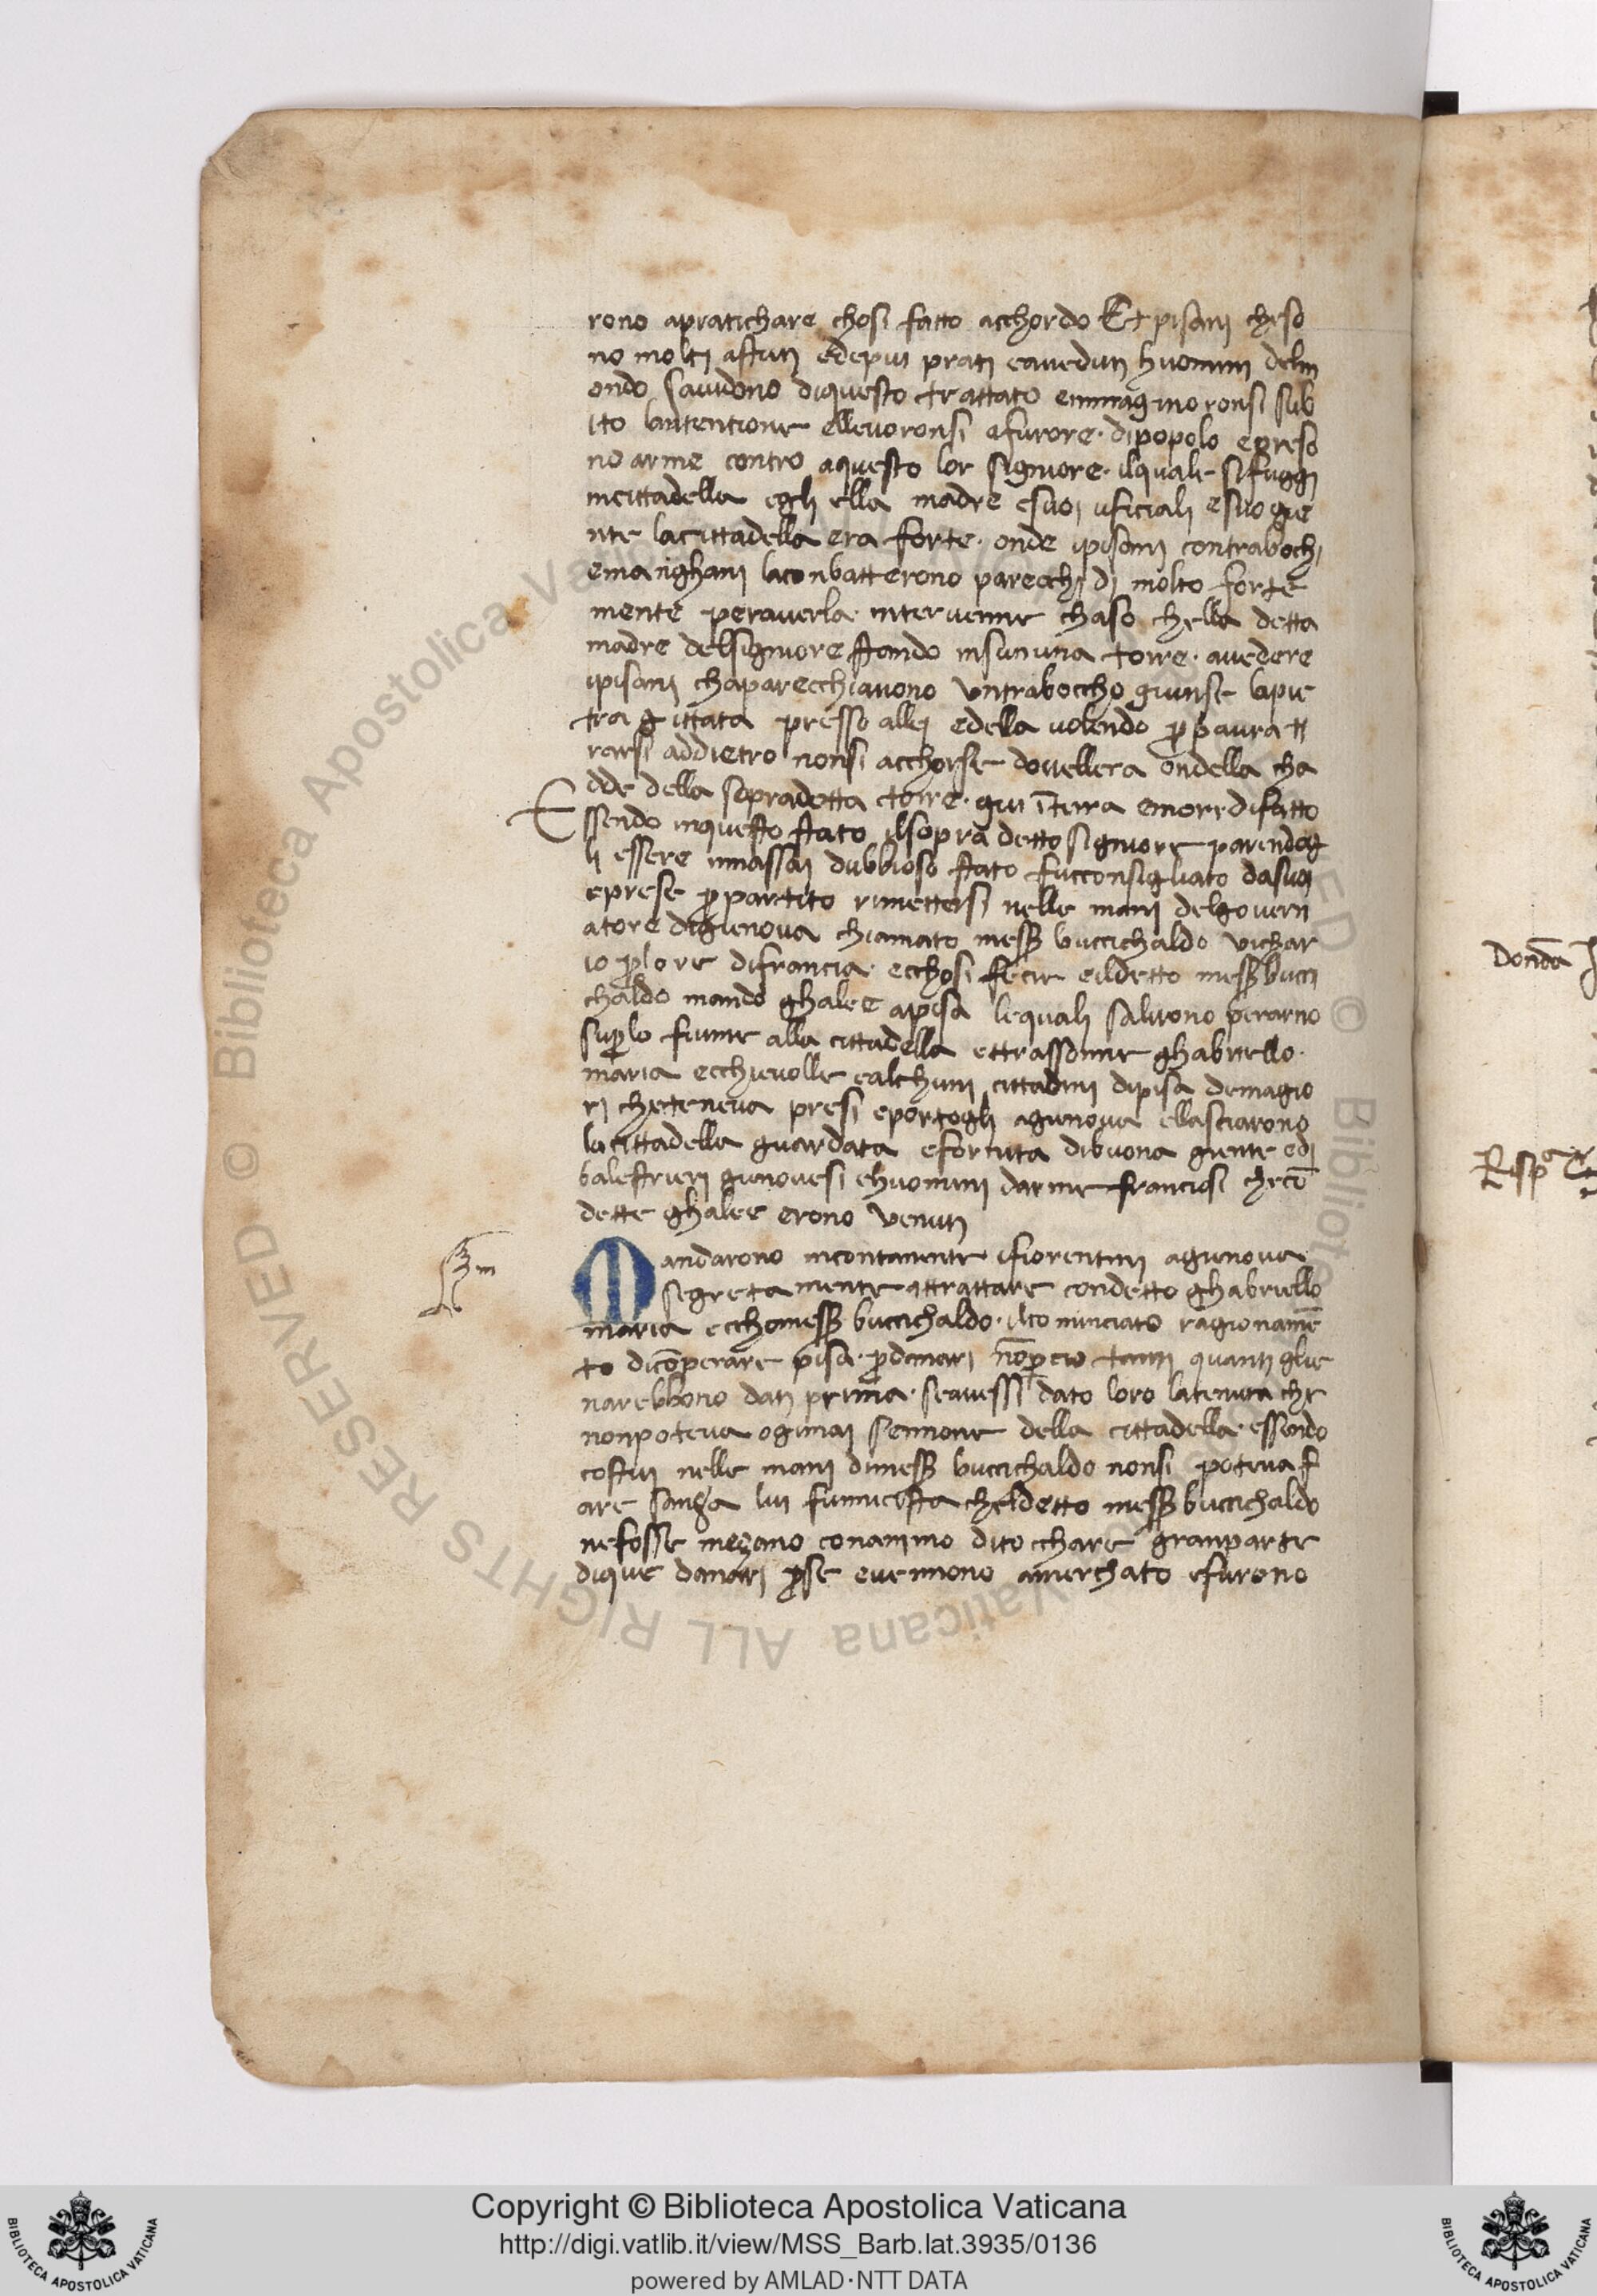 rono apratichare chosi fatto acchordo Et pisanj cheso
no moltj astutj edepiu pratj eavedutj huominj delm
ondo savidono diquesto trattato emmaginoronsi sub
ito lantentione ellevoronsi afurore · dipopolo epreso
no arme contro aquesto lor signiore · ilquale sifuggj
incittadella eglj ella madre esuoj uficialj esuo gie
nte lacittadella era forte · onde ipisanj contrabochj
emanghanj laconbatterono parecchj dj molto forte
mente peraverla · intervenne chaso chella detta
madre delsigniore stando insununa torre · avedere
ipisanj chaparecchiavono untraboccho giunse lapie
tra gittata presso allej edella volendo p̱ paura ti
rarsi addietro nonsi acchorse dovellera ondella cha
dde della sopradetta torre · giu ī terra emorj difatto
Essendo inquesto stato ilsopra detto signiore parendog
lj essere innassaj dubbioso stato fucconsigliato dasuoj
eprese p̱ partito rimettersi nelle manj delghovern
atore digienova chiamato mess̱ buccichaldo vichar
io p̱ lo re difrancia · ecchosi fecie eildetto mess̱ bucci
chaldo mando ghalee apisa lequalj salirono perarno
sup̱ lo fiume alla cittadella ettrassonne ghabriello ·
maria ecchievolle ealchunj cittadinj dipisa demagio
rj cheteneva presi eportoglj agienova ellasciarono
lacittadella guardata efornita dibuona giente edj
balestrierj gienovesi ehuominj darme franciosi checō
dette ghalee erono venutj
Mandarono incontanente ifiorentinj agienova
segretamente attrattare condetto ghabriello
maria ecchomess̱ buccichaldo · ilcominciato ragionamē
to dicōperare pisa · p̱ danarj nōp̱ cio tantj quantj glie
narebbono datj prima · seavessi dato loro latenuta che
nonpoteva ogimaj sennone della cittadella · essendo
costuj nelle manj dimess̱ buccichaldo nonsi poteva f
are sanza luj funnicista cheldetto mess̱ buccichaldo
nefosse mezano conanimo ditocchare granparte
dique danarj p̱ se evennono amerchato efurono
Donda
Rispo
Copyright © Biblioteca Apostolica Vaticana
http://digi.vatlib.it/view/MSS_Barb.lat.3935/0136
powered by AMLAD·NTT DATA
BIBLIOTECA APOSTOLICA VATICANA
BIBLIOTECA APOSTOLICA VATICANA